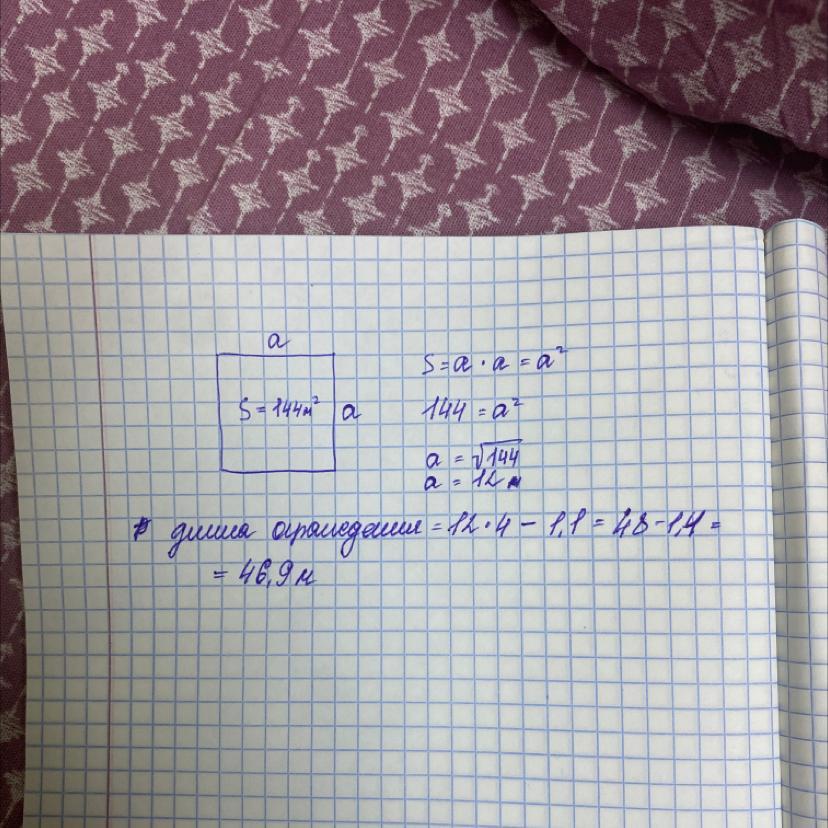 a
S = a · a = a²
S = 144 м²
a
144 = a²
a = √144
a = 12 м
длина ограждения = 12 · 4 − 1,1 = 48 − 1,1 =
= 46,9 м